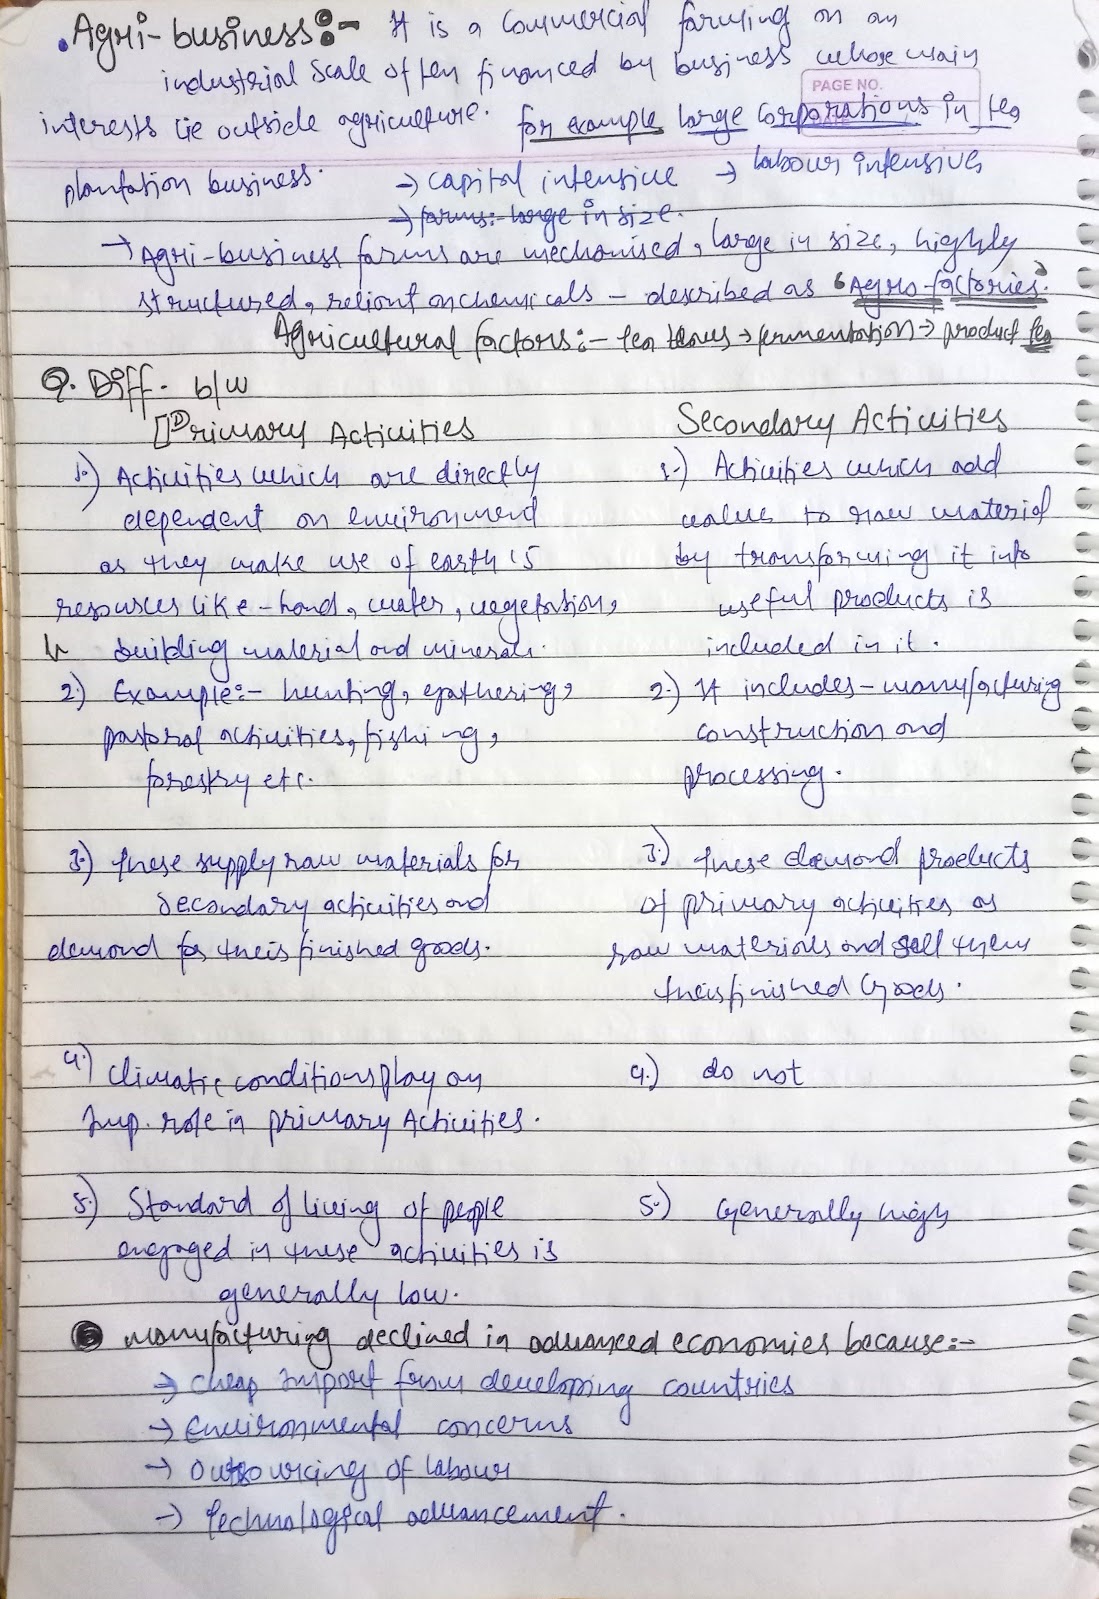 .Agri-business:- It is a commercial farming on an
industrial scale often financed by business whose main
PAGE NO.
interests lie outside agriculture. for example large corporations in tea
plantation business. → capital intensive → labour intensive
→ farms:- large in size.
→ Agri-business farms are mechanised, large in size, highly
structured, reliant on chemicals - described as 'Agro-factories'.
Agricultural factors:- tea → fermentation → product tea
Q. Diff. b/w
Primary Activities
Secondary Activities
1.) Activities which are directly
dependent on environment
as they make use of earth's
resources like - land, water, vegetation,
building material and minerals.
1.) Activities which add
value to raw material
by transforming it into
useful products is
included in it.
2.) Example:- hunting, gathering,
pastoral activities, fishing,
forestry etc.
2.) It includes - manufacturing
construction and
processing.
3.) these supply raw materials for
secondary activities and
demand for their finished goods.
3.) these demand products
of primary activities as
raw materials and sell them
their finished Goods.
4.) Climatic conditions play an
Imp. role in primary Activities.
4.) do not
5.) Standard of living of people
engaged in these activities is
generally low.
5.) Generally high
manufacturing declined in advanced economies because:-
→ cheap import from developing countries
→ Environmental concerns
→ Outsourcing of labour
→ Technological advancement.